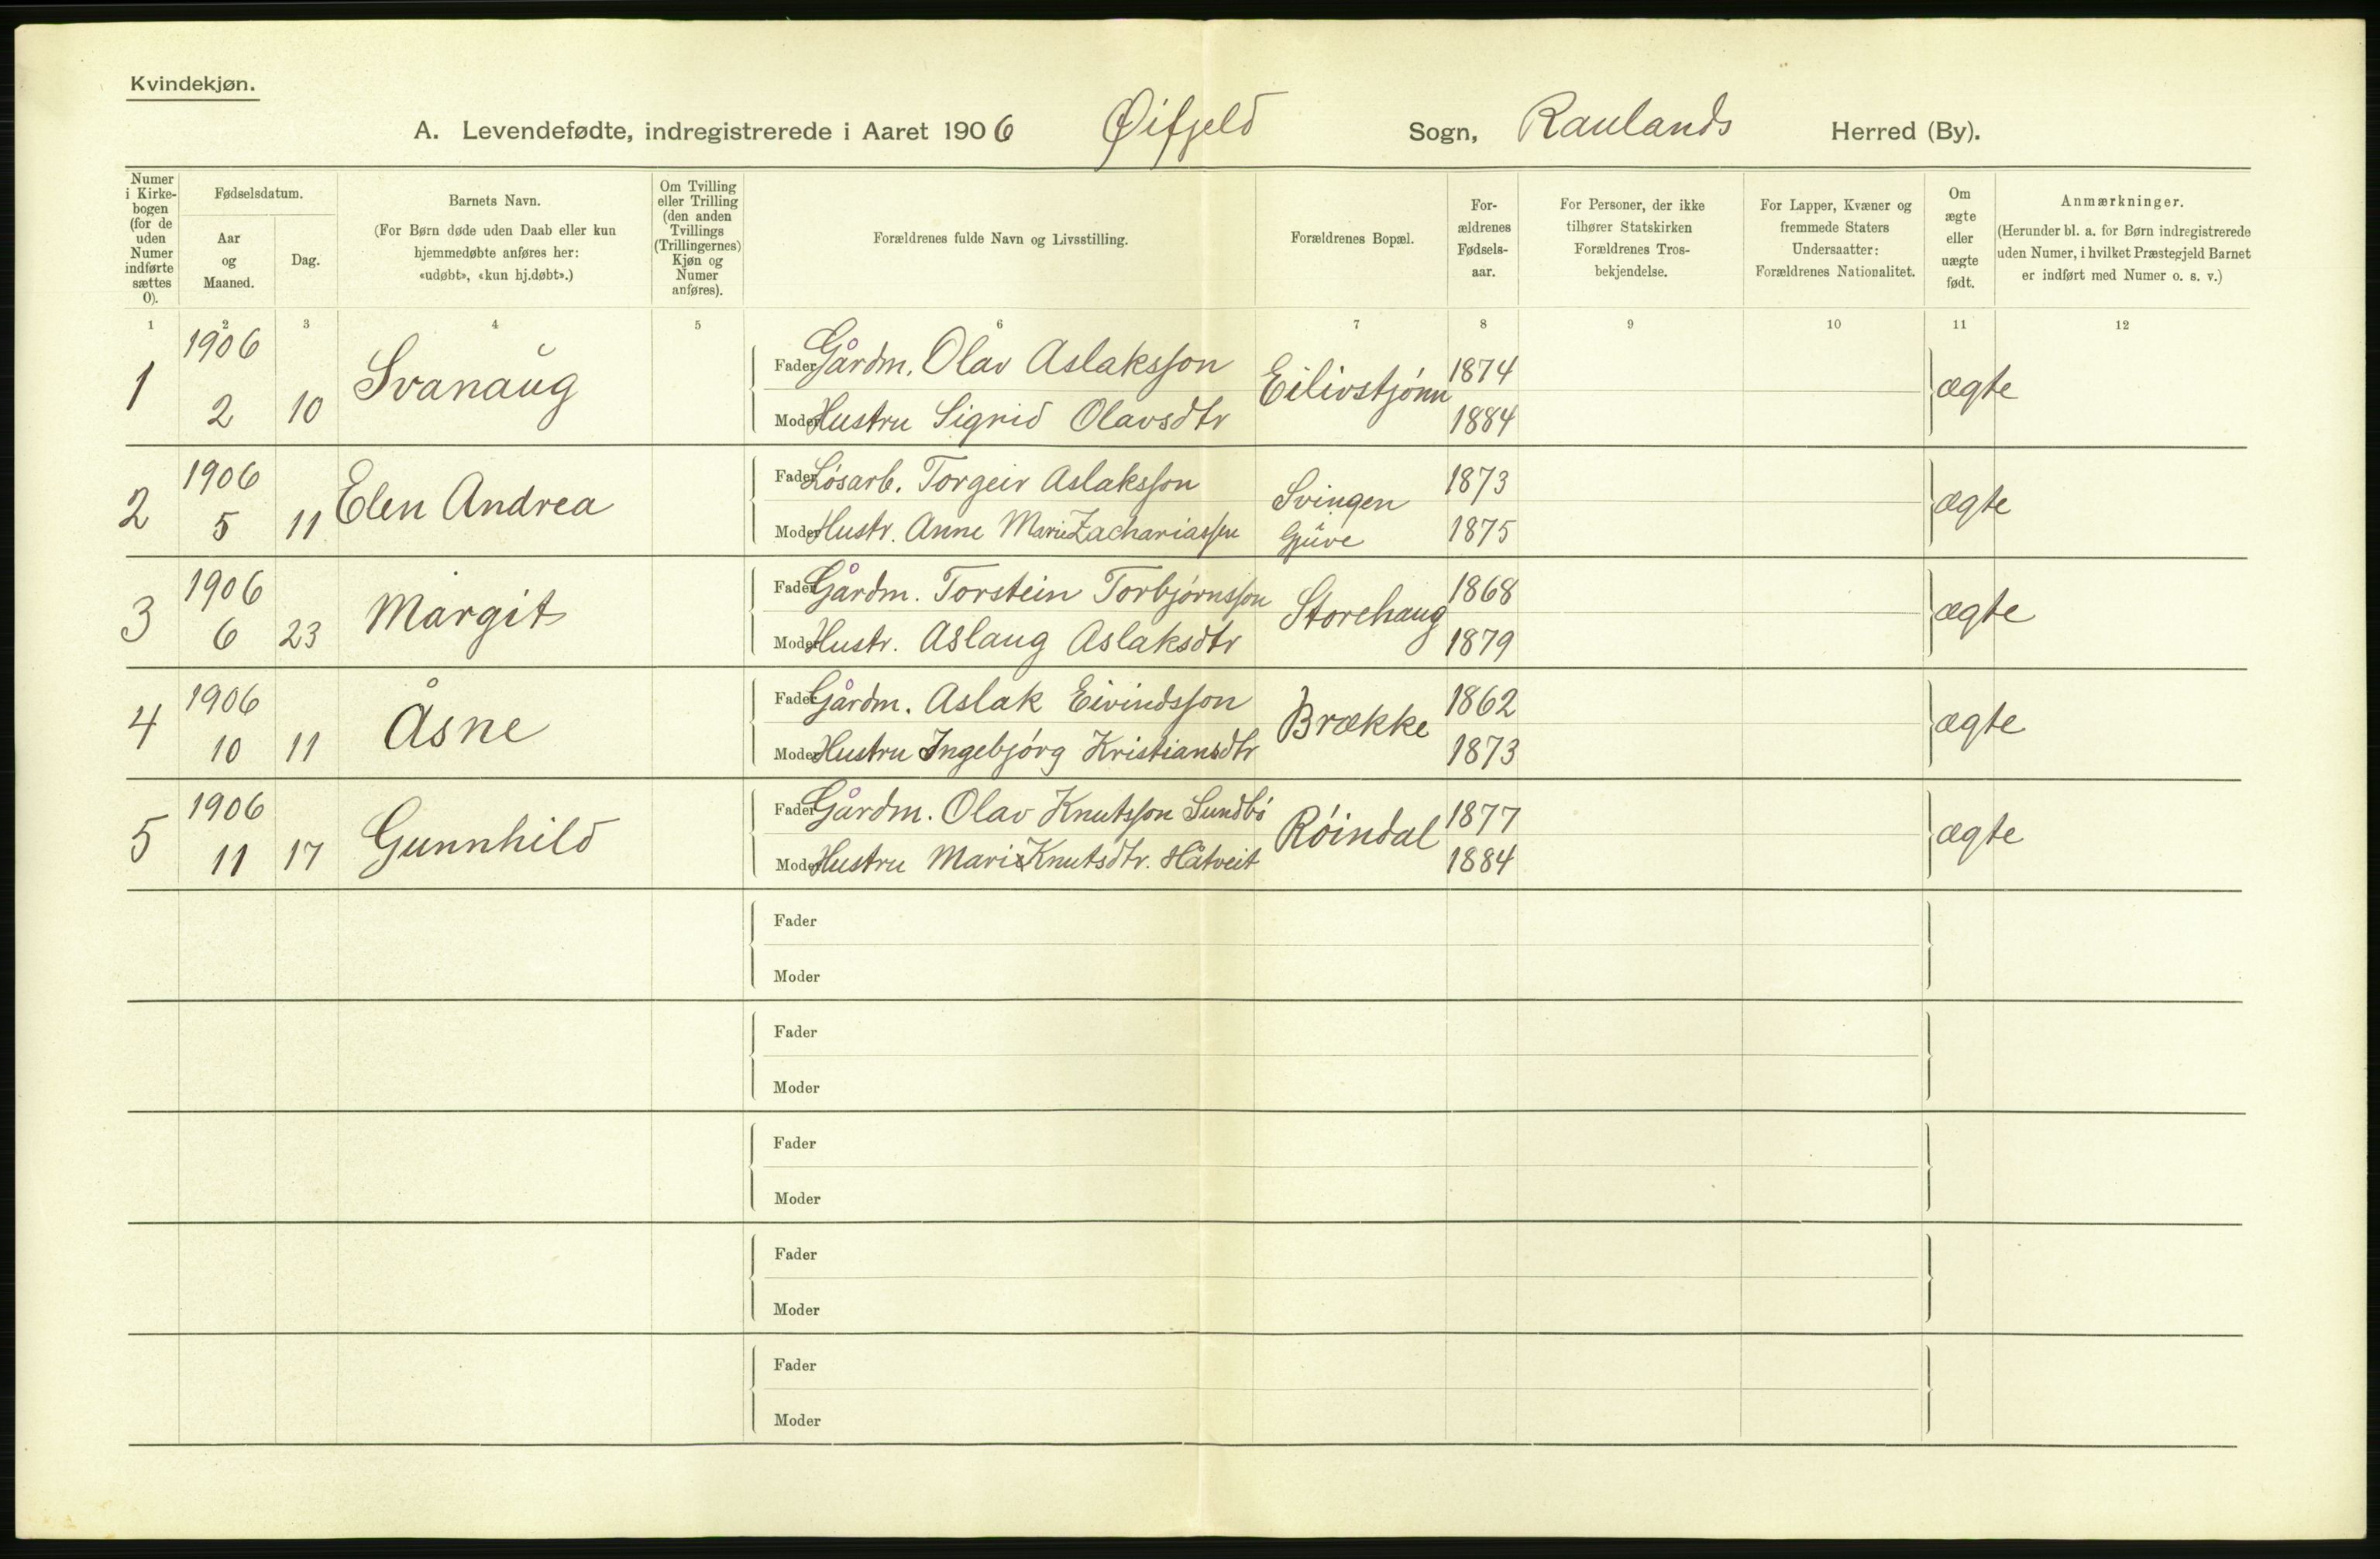 Kvindekjøn.
A. Levendefødte, indregistrerede i Aaret 1906 Øifjeld Sogn, Raulands Herred (By).
Numer i Kirkebogen (for de uden Numer indførte sættes 0).
Fødselsdatum.
Aar og Maaned.
Dag.
Barnets Navn.
(For Børn døde uden Daab eller kun
hjemmedøbte anføres her:
«udøbt», «kun hj.døbt».)
Om Tvilling
eller Trilling
(den anden
Tvillings
(Trillingernes)
Kjøn og
Numer
anføres).
Forældrenes fulde Navn og Livsstilling.
Forældrenes Bopæl.
For-
ældrenes
Fødsels-
aar.
For Personer, der ikke
tilhører Statskirken
Forældrenes Tros-
bekjendelse.
For Lapper, Kvæner og
fremmede Staters
Undersaatter:
Forældrenes Nationalitet.
Om
ægte
eller
uægte
født.
Anmærkninger.
(Herunder bl. a. for Børn indregistrerede
uden Numer, i hvilket Præstegjeld Barnet
er indført med Numer o. s. v.)
1 2 3 4 5 6 7 8 9 10 11 12
1 1906 2 10 Svanaŭg
Fader Gårdm. Olav Aslaksson Eilivstjónn 1874 ægte
Moder Hustru Sigrid Olavsdtr 1884
2 1906 5 11 Elen Andrea
Fader Lósarb. Torgeir Aslaksson Svingen 1873 ægte
Moder Hustr. Anne Marie Zachariassen Gjŭve 1875
3 1906 6 23 Margit
Fader Gårdm. Torstein Torbjórnsson Storehaug 1868 ægte
Moder Hustr. Aslaug Aslaksdtr 1879
4 1906 10 11 Åsne
Fader Gårdm. Aslak Eivindsson Brække 1862 ægte
Moder Hustru Ingebjórg Kristiansdtr 1873
5 1906 11 17 Gunnhild
Fader Gårdm. Olav Knutsson Sundbó Róindal 1877 ægte
Moder Hustru Mari Knutsdtr. Håtveit 1884
Fader
Moder
Fader
Moder
Fader
Moder
Fader
Moder
Fader
Moder